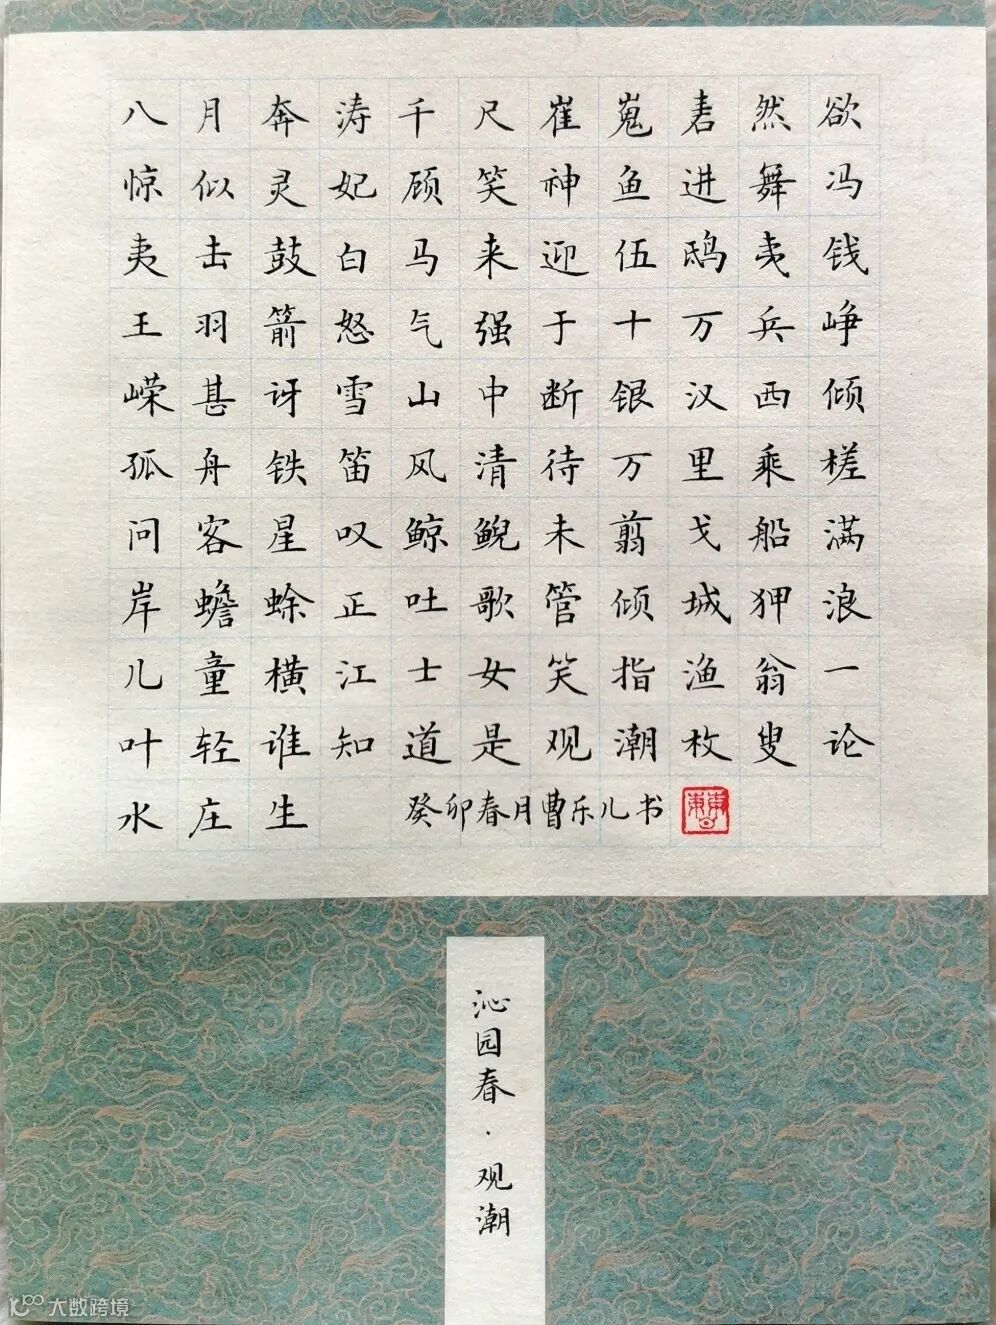 八月奔涛千尺崔嵬砉然欲
惊似灵妃顾笑神鱼进舞冯
夷击鼓白马来迎伍鸱夷钱
王羽箭怒气强于十万兵峥
嵘甚讶雪山中断银汉西倾
孤舟铁笛风清待万里乘槎
问客星叹鲸鲵未翦戈船满
岸蟾蜍正吐歌管倾城狎浪
儿童横江士女笑指渔翁一
叶轻谁知道是观潮枚叟论
水庄生
癸卯春月曹乐儿书
沁园春·观潮
大数跨境